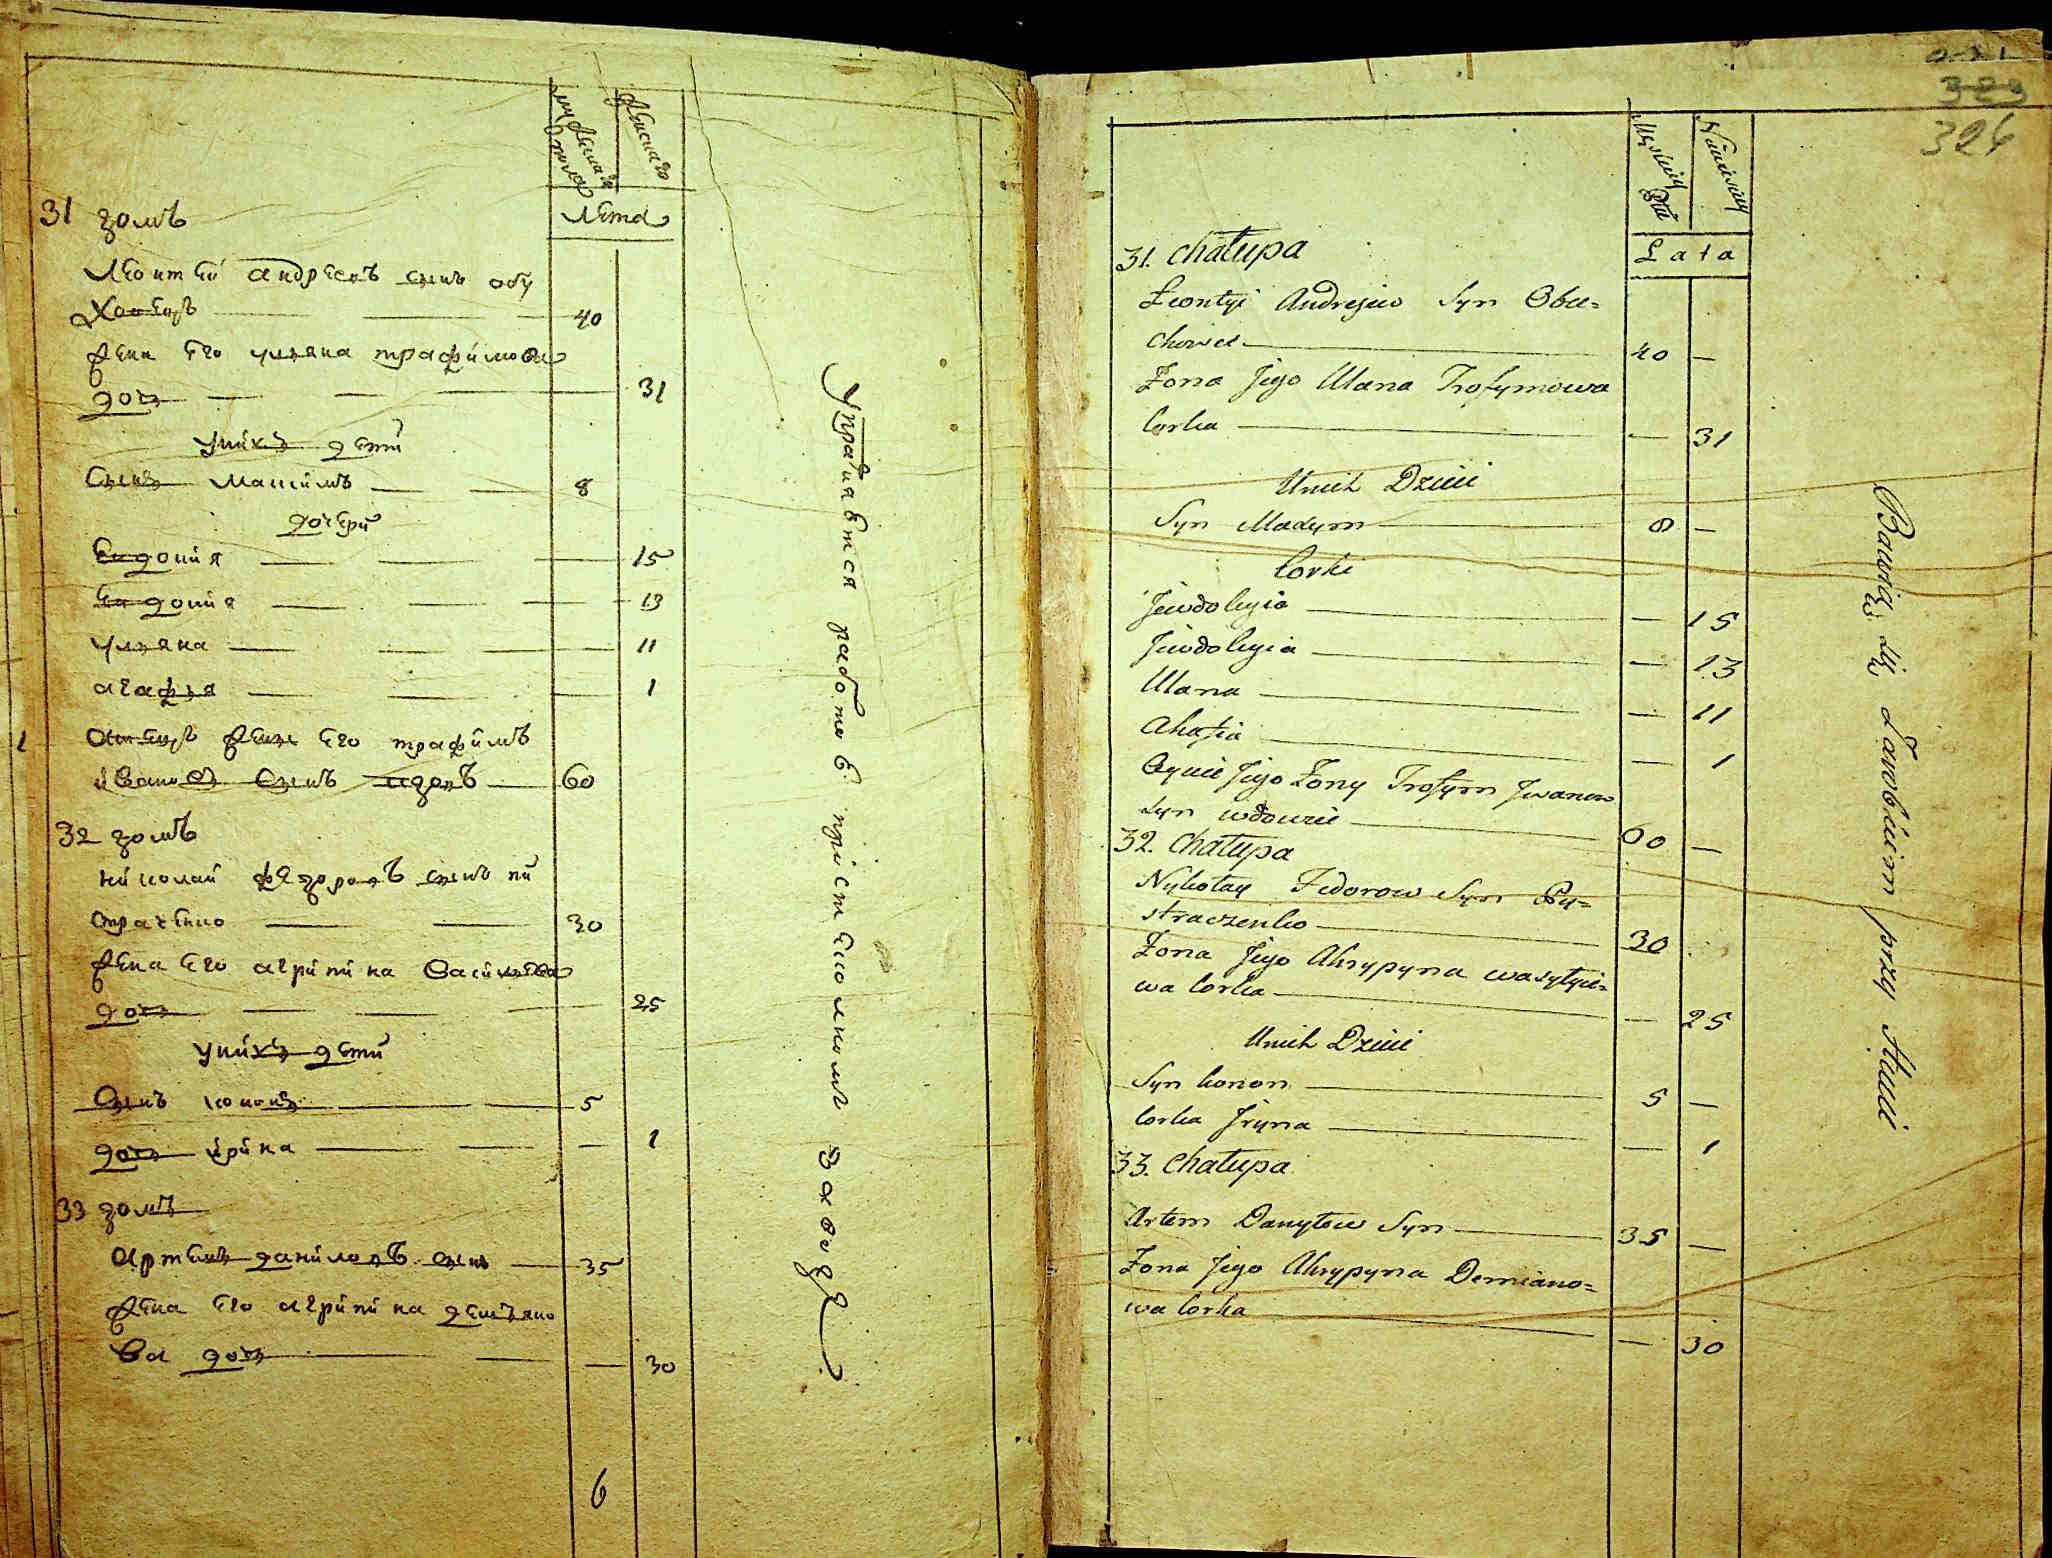 мужеска пола
женска
Лета
31 домъ
Леонтей андреевъ сынъ обу
Ховецъ 40
жена его уляна трафимова
дочь 31
уних дети
Сынъ Максимъ 8
дочери
Евдокия 15
Евдокия 13
уляна 11
агафья 1
1 Отецъ жены его трафимъ
ивановъ Сынъ вдовъ 60
32 домъ
николай федоровъ сынъ пи
страченко 30
жена его агрипина Василиева
дочь 25
уних дети
Сынъ кононъ 5
дочь ирина 1
33 домъ
Артемъ даниловъ сынъ 35
жена его агрипина демьяно
Ва дочь 30
6
Упражняется работою в пристенномъ заводе
323
326
Męskiey Płci
Niewieściey
Lata
31. Chałupa
Leontyi Andrejew Syn Obu=
chowec 40 —
Żona Jego Ulana Trofymowa
Corka — 31
Unich Dzieci
Syn Maxym 8 —
Corki
Jewdokyia — 15
Jewdokyia — 13
Ulana — 11
Ahafia — 1
Oyciec Jego Żony Trofym Iwanow
Syn wdowiec 60 —
32. Chałupa
Nykołay Fedorow Syn Py=
straczenko 30
Żona Jego Ahrypyna wasylyie=
wa Corka — 25
Unich Dzieci
Syn konon 5 —
Corka Jryna — 1
33. Chałupa
Artem Danyłow Syn 35 —
Żona Jego Ahrypyna Demiano=
wa Corka — 30
Bawią się Zarobkiem przy Hucie